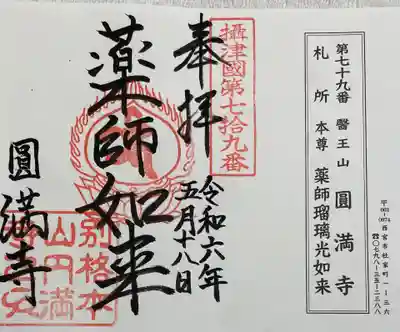 第七十九番 醫王山 圓満寺
札所 本尊 薬師瑠璃光如来
西宮市社家町一ー三六
攝津國第七拾九番
奉拝
令和六年
五月十八日
薬師如来
圓満寺
別格本
山円満